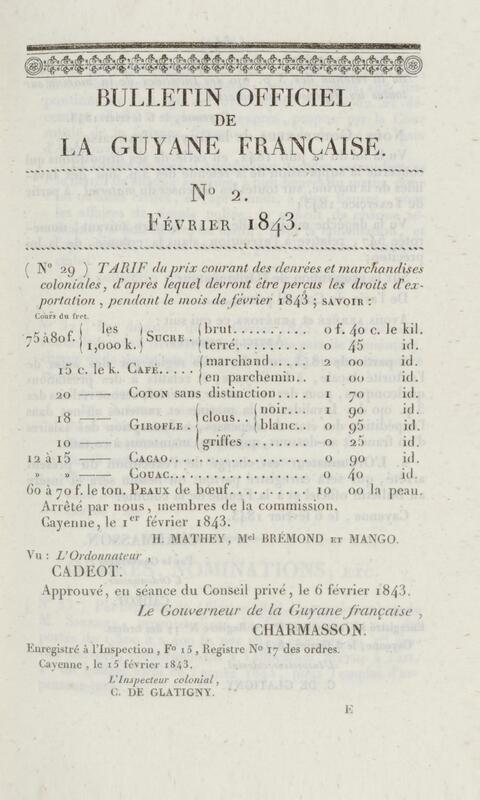 BULLETIN OFFICIEL
DE
LA GUYANE FRANÇAISE.
N° 2.
FÉVRIER 1843.
( N° 29 ) TARIF du prix courant des denrées et marchandises
coloniales, d'après lequel devront être perçus les droits d'ex-
portation, pendant le mois de février 1843 ; SAVOIR :
Cours du fret.
75 à 80 f. { les 1,000 k. { SUCRE. { brut.......... 0 f. 40 c. le kil.
{ terré.......... 0 45 id.
15 c. le k. CAFÉ..... { marchand..... 2 00 id.
{ en parchemin.. 1 00 id.
20 —— COTON sans distinction.... 1 70 id.
18 —— GIROFLE. { clous.. { noir... 1 90 id.
{ blanc.. 0 95 id.
10 —— { griffes ........ 0 25 id.
12 à 15 —— CACAO.................. 0 90 id.
» » —— COUAC.................. 0 40 id.
60 à 70 f. le ton. PEAUX de bœuf.......... 10 00 la peau.
Arrêté par nous, membres de la commission.
Cayenne, le 1er février 1843.
H. MATHEY, Mel BRÉMOND ET MANGO.
Vu : L'Ordonnateur,
CADEOT.
Approuvé, en séance du Conseil privé, le 6 février 1843.
Le Gouverneur de la Guyane française,
CHARMASSON.
Enregistré à l'Inspection, F° 15, Registre N° 17 des ordres.
Cayenne, le 15 février 1843.
L'Inspecteur colonial,
C. DE GLATIGNY.
E